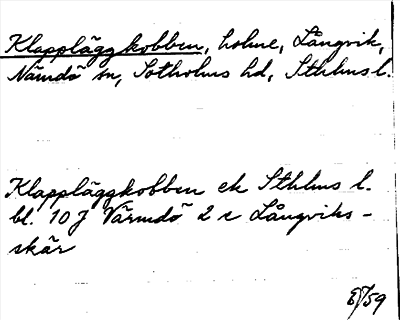 Klappläggkobben, holme, Långvik,
Nämdö sn, Sotholms hd, Sthlms l.
Klappläggkobben ek Sthlms l.
bl. 10 J Värmdö 2 c Långviks-
skär
59